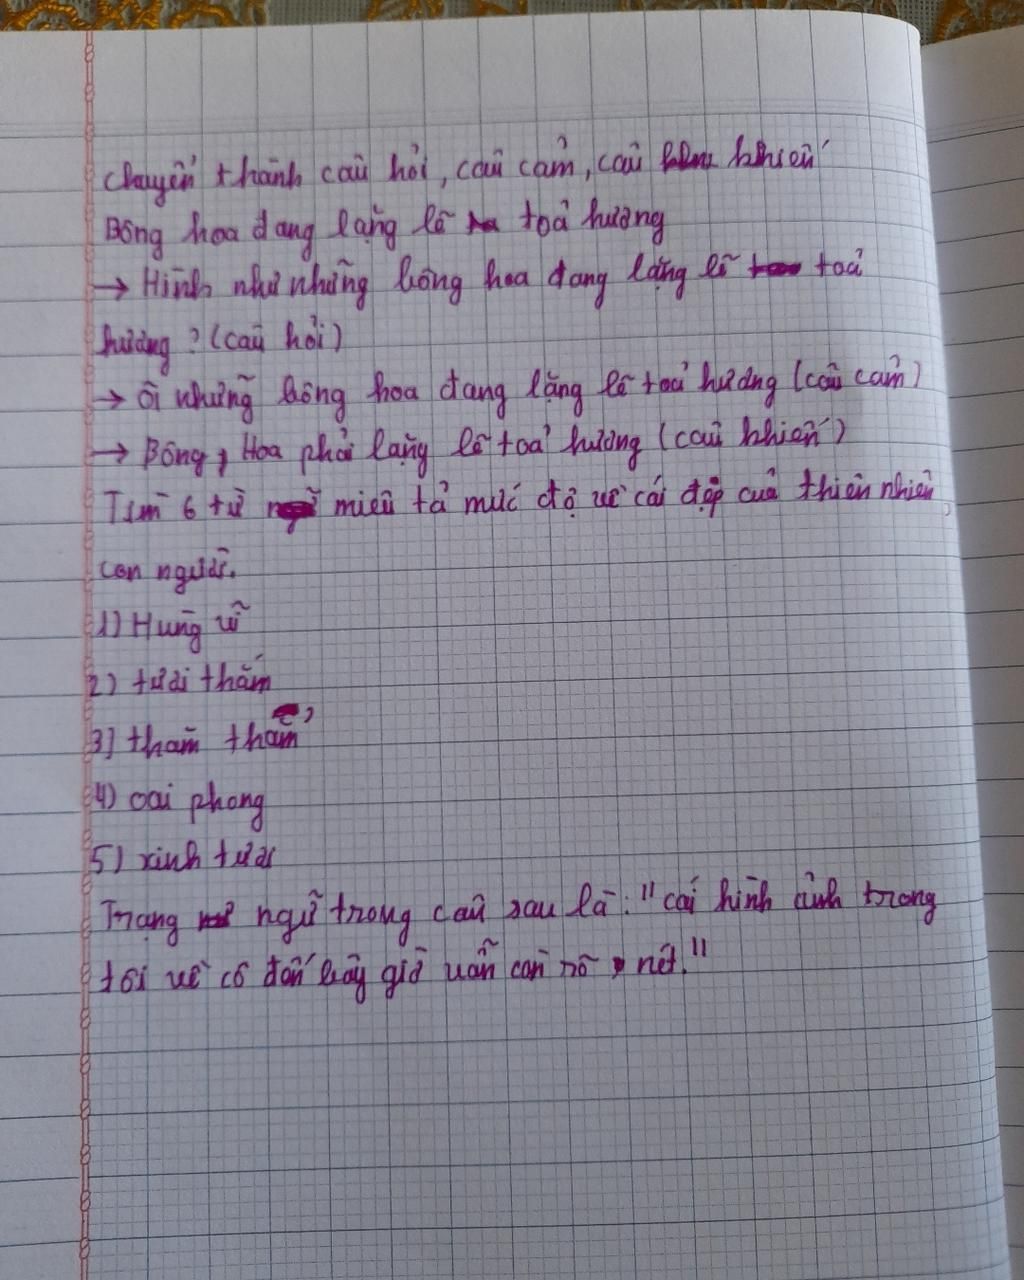 Chuyển thành câu hỏi, câu cảm, câu khiến
Bông hoa đang lặng lẽ toả hương
→ Hình như những bông hoa đang lặng lẽ toả
hương? (câu hỏi)
→ Ôi những bông hoa đang lặng lẽ toả hương (câu cảm)
→ Bông, Hoa phải lặng lẽ toả hương (câu khiến)
Tìm 6 từ miêu tả mức độ về cái đẹp của thiên nhiên,
con người.
1) Hùng vĩ
2) tươi thắm
3) thăm thẳm
4) oai phong
5) xinh tươi
Trạng ngữ trong câu sau là: "cái hình ảnh trong
tôi về cô đến bây giờ vẫn còn rõ nét."